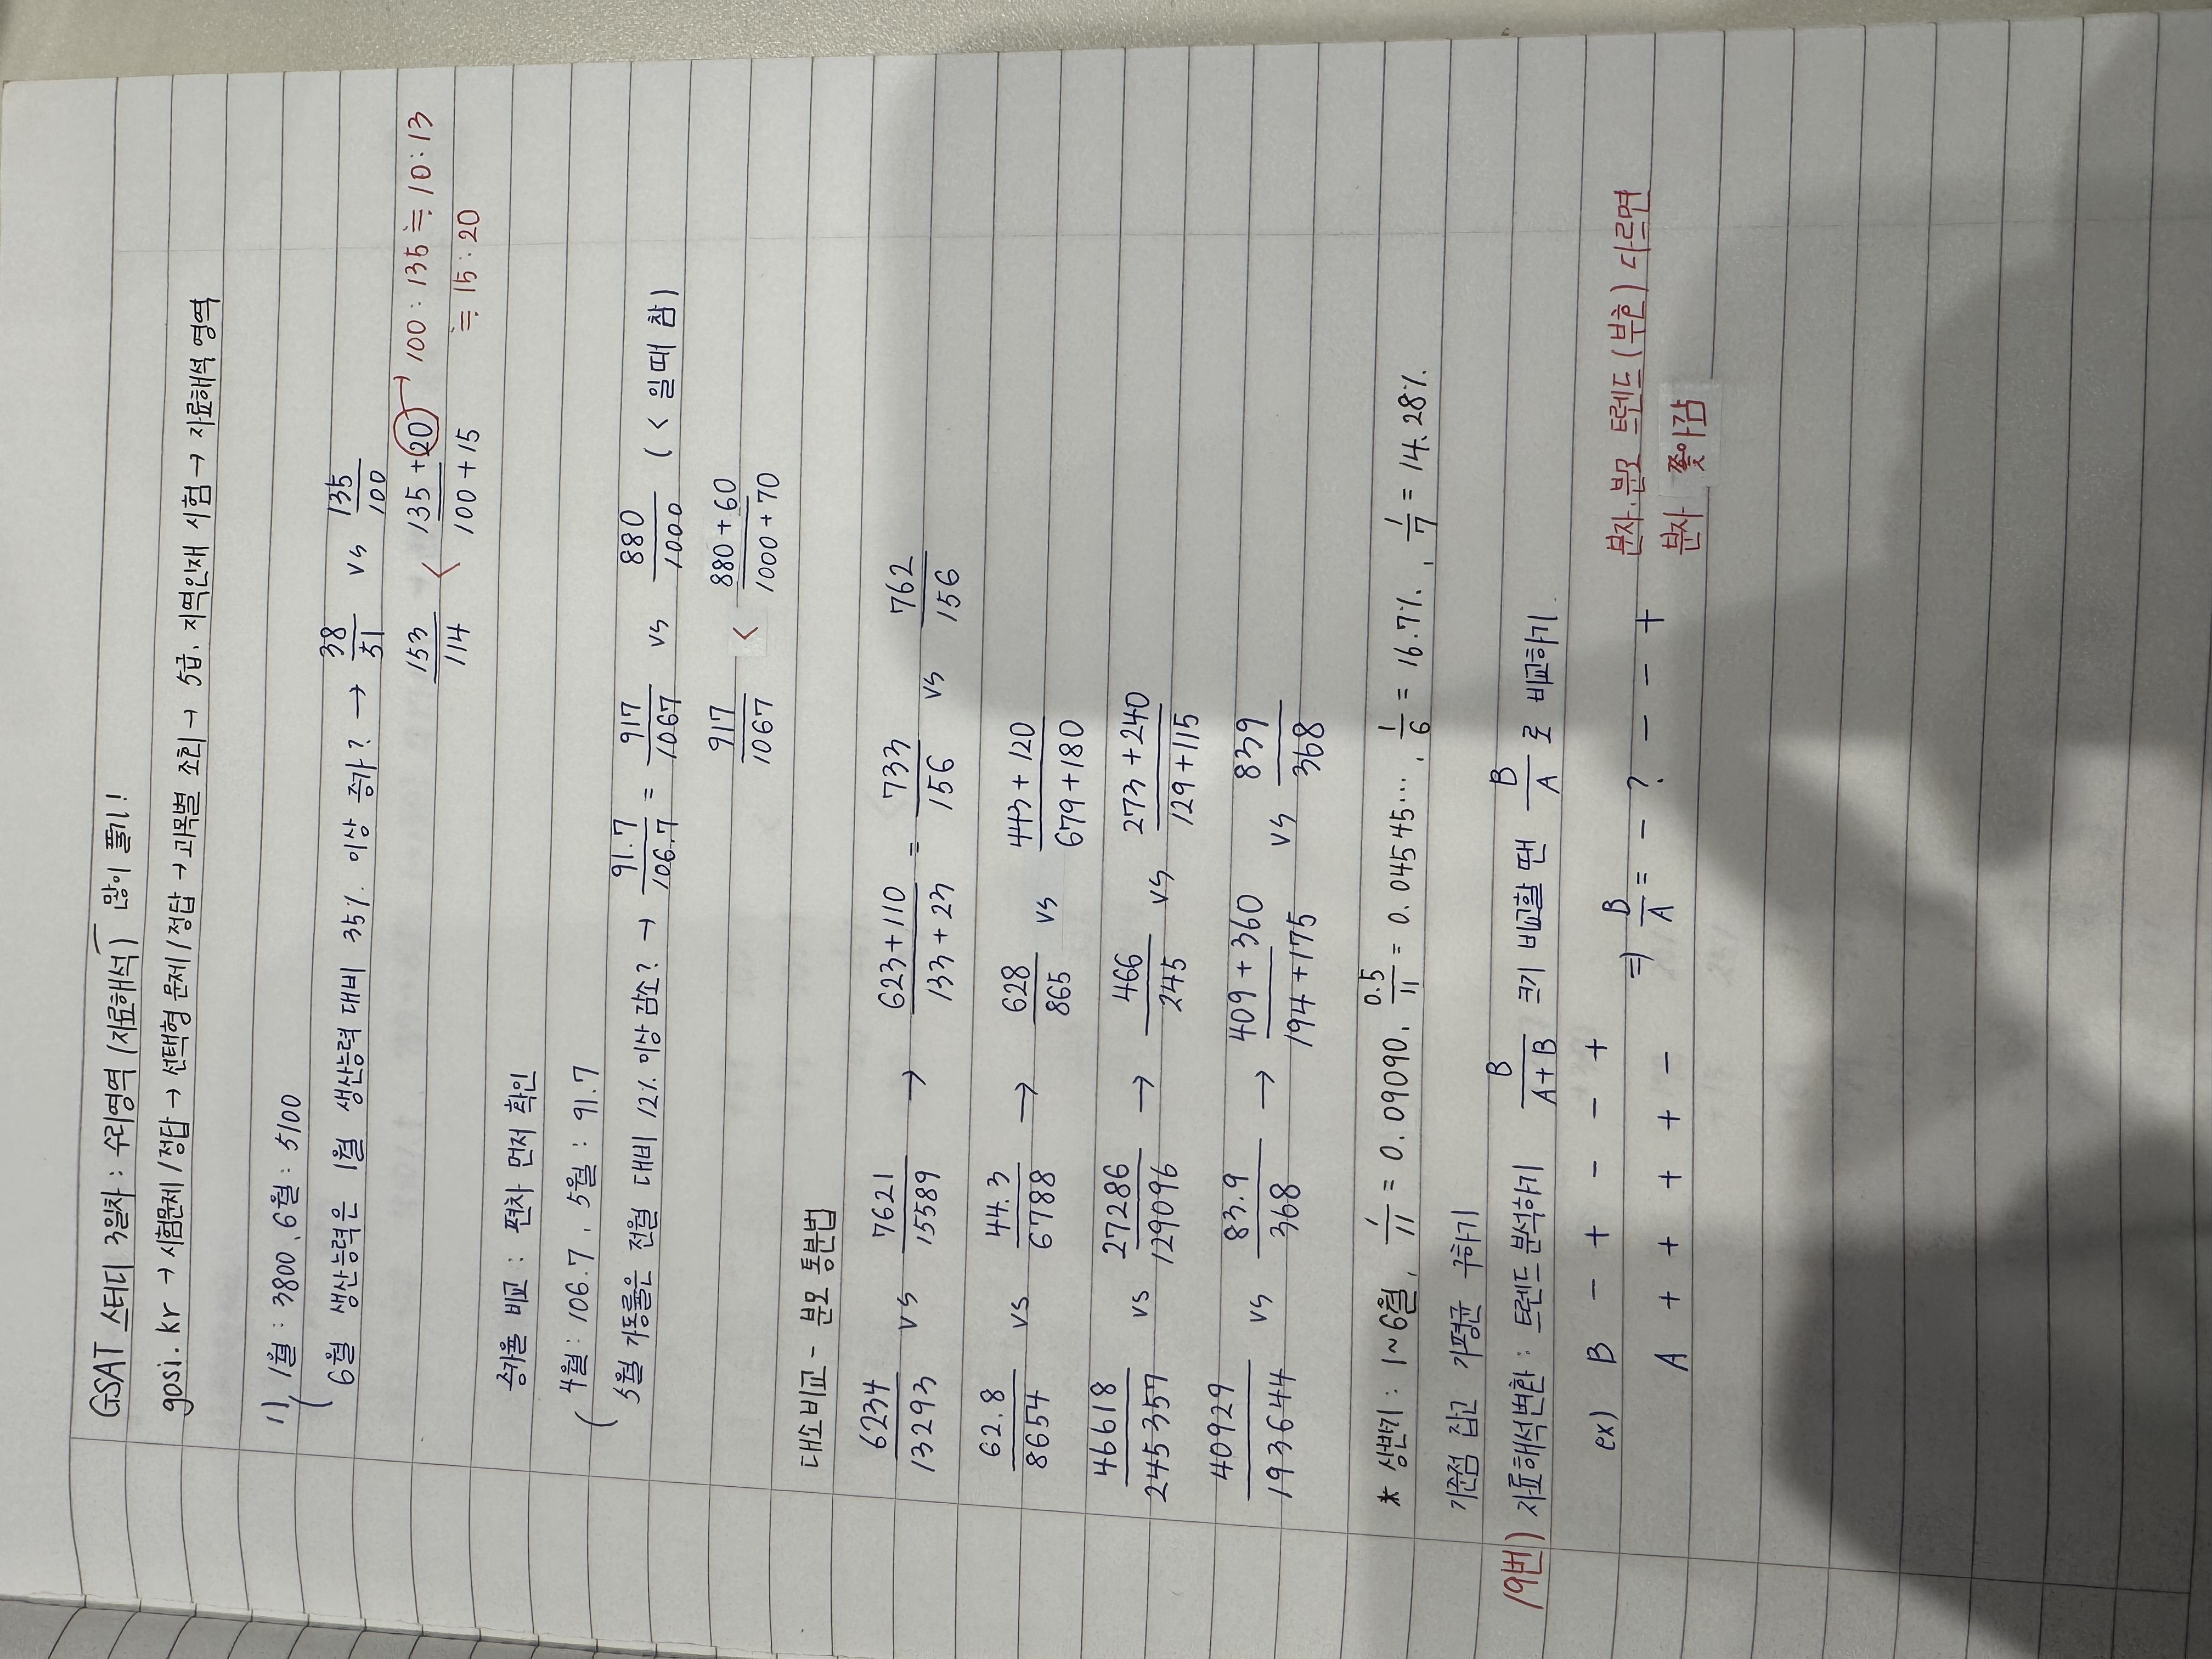 GSAT 스터디 3일차 : 수리영역 (자료해석) 많이 풀기!
gosi.kr → 시험문제/정답 → 선택형 문제/정답 → 과목별 조회 → 5급, 지역인재 시험 → 자료해석 영역
1) 1월 : 3800, 6월 : 5100
6월 생산능력은 1월 생산능력 대비 35% 이상 증가? → 38/51 vs 135/100
153/114 < (135+20)/(100+15) → 100 : 135 ≒ 10 : 13
≒ 15 : 20
증가율 비교 : 편차 먼저 확인
4월 : 106.7, 5월 : 91.7
5월 가동률은 전월 대비 12% 이상 감소? → 91.7/106.7 = 917/1067 vs 880/1000 ( < 일때 참)
917/1067 < (880+60)/(1000+70)
대소비교 - 분모 통분법
6234/13293 vs 7621/15589 → (623+110)/(133+23) = 733/156 vs 762/156
62.8/8654 vs 44.3/6788 → 628/865 vs (443+120)/(679+180)
46618/245357 vs 27286/129096 → 466/245 vs (273+240)/(129+115)
40929/193644 vs 83.9/368 → (409+360)/(194+175) vs 839/368
* 상반기 : 1~6월, 1/11 = 0.09090, 0.5/11 = 0.04545···, 1/6 = 16.7%, 1/7 = 14.28%
기준점 잡고 가평균 구하기
19번) 자료해석변환 : 트렌드 분석하기 B/(A+B) 크기 비교할 땐 B/A 로 비교하기.
ex) B - + - - + ⇒ B/A = - ? - - + 분자·분모 트렌드(부호) 다르면
A + + + + - 분자 쫓아감